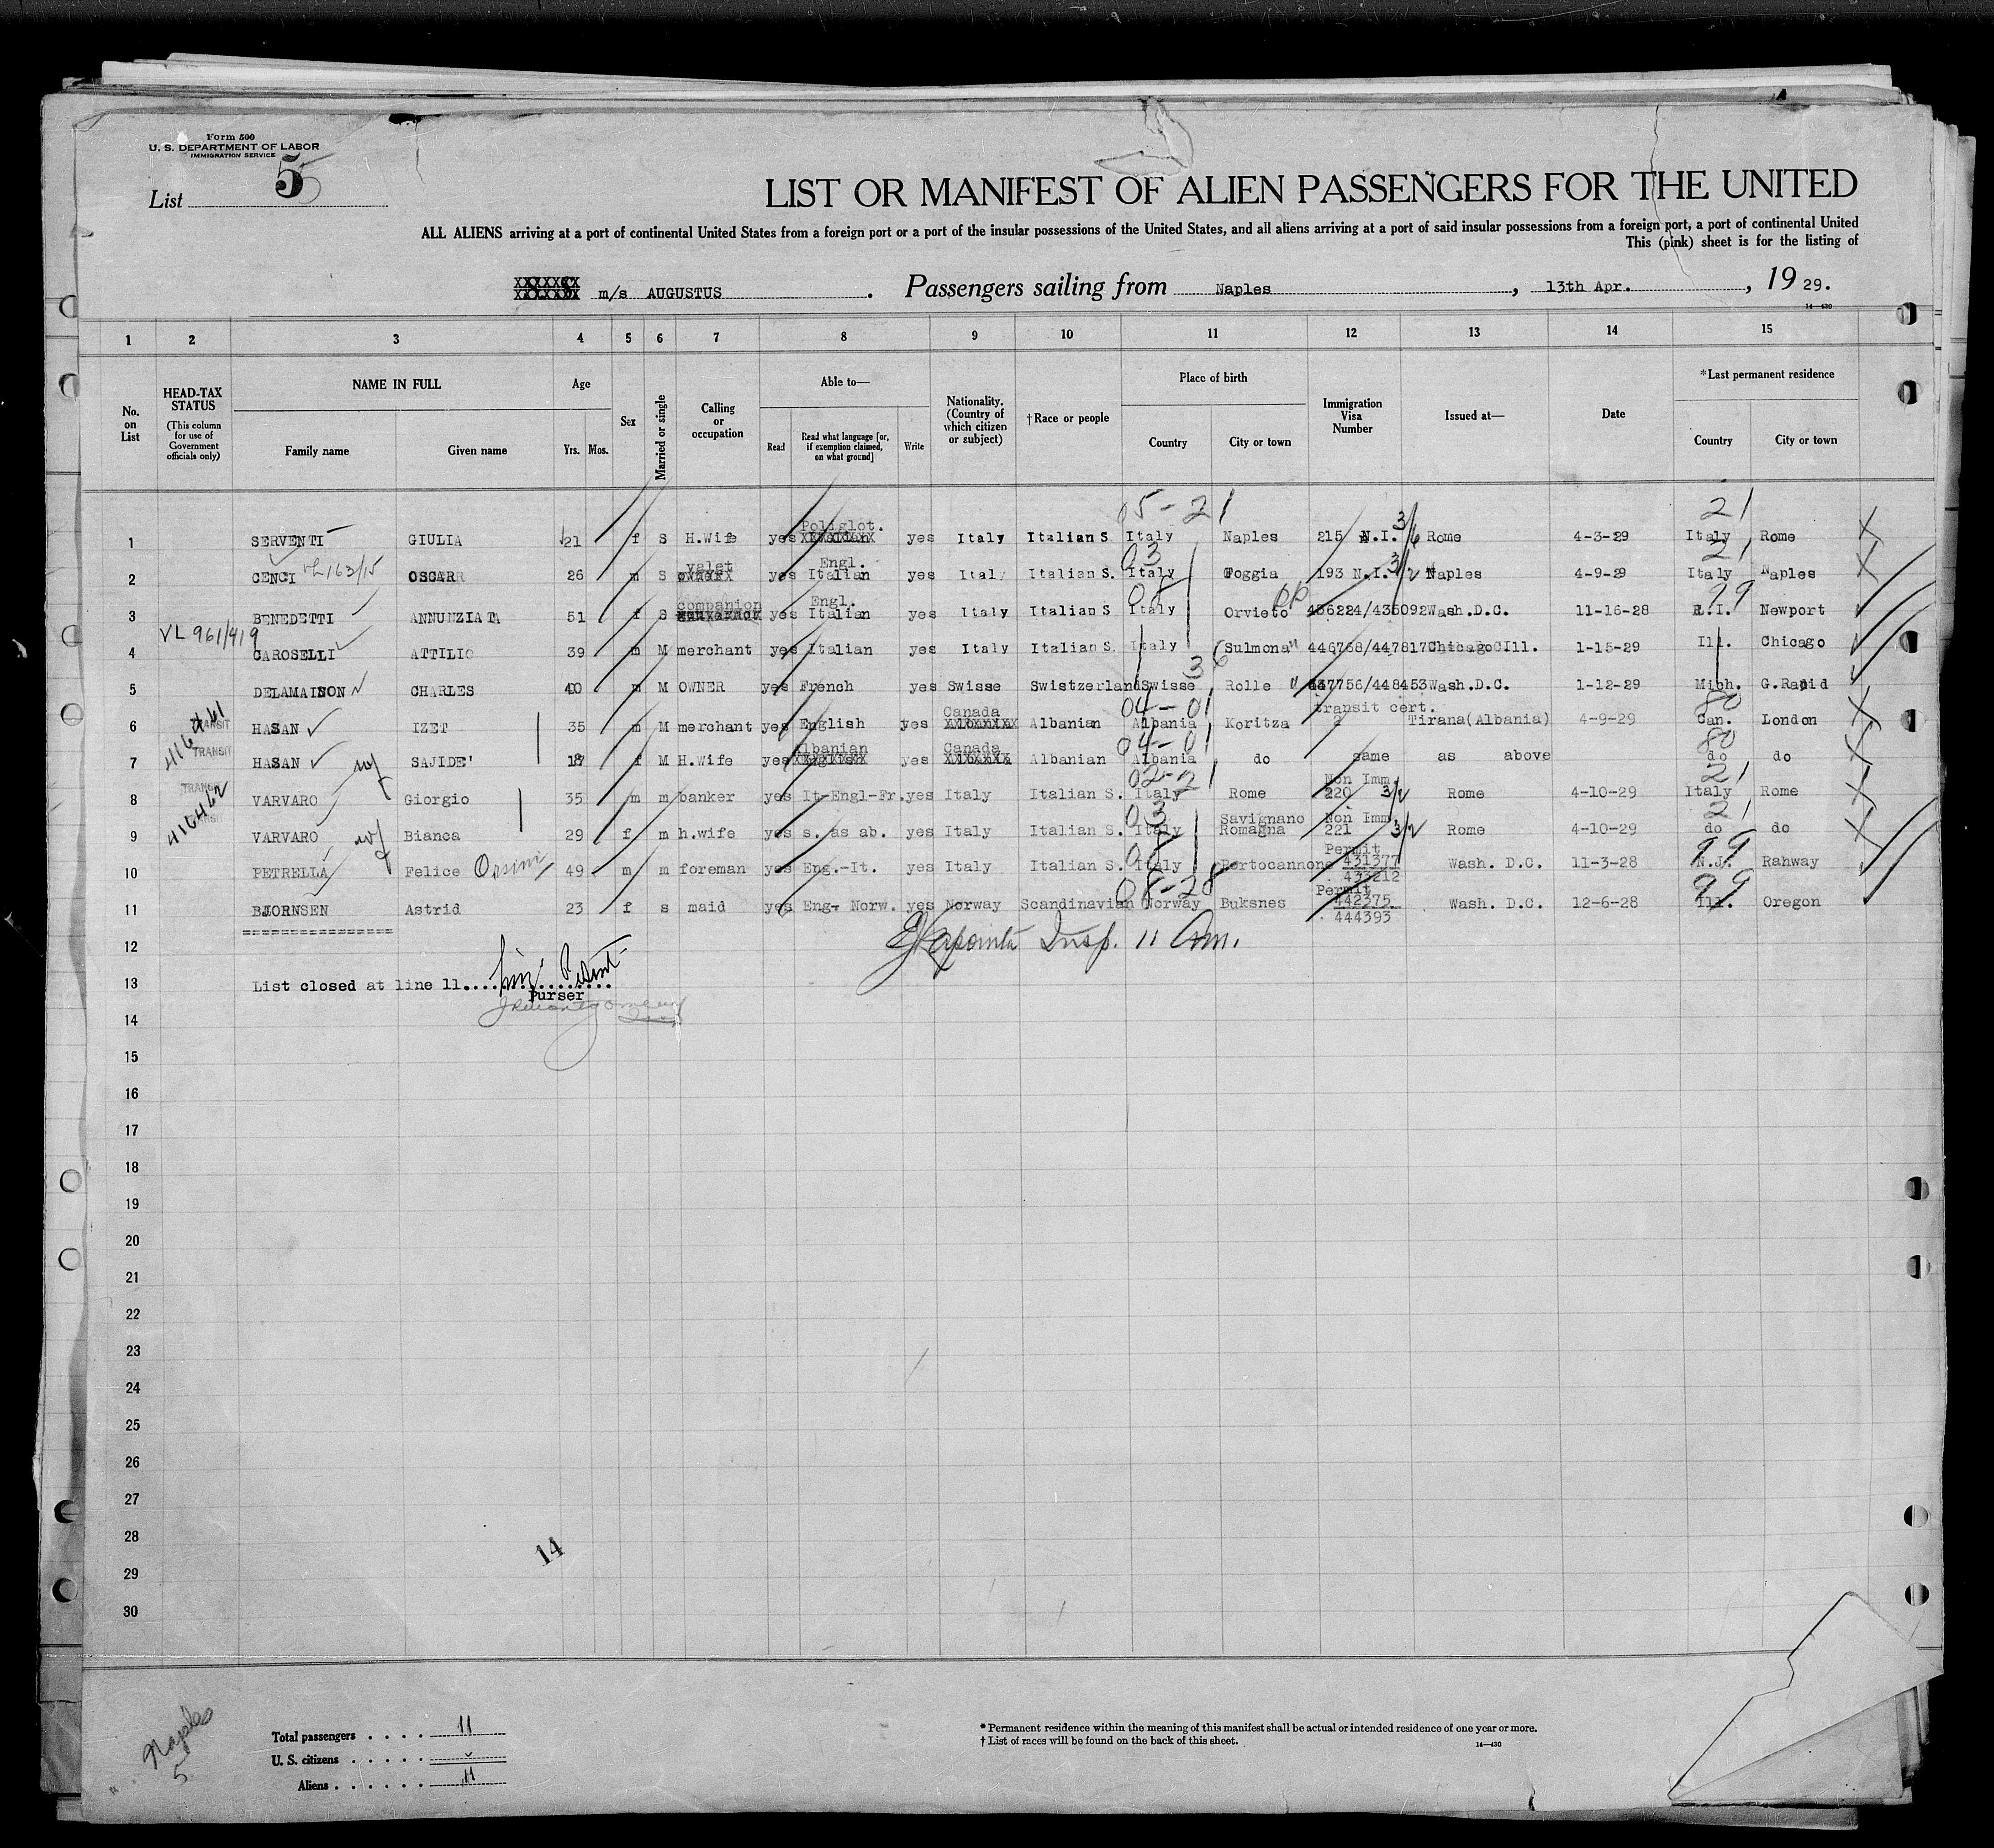 Form 500
U. S. DEPARTMENT OF LABOR
IMMIGRATION SERVICE
List 5
LIST OR MANIFEST OF ALIEN PASSENGERS FOR THE UNITED
ALL ALIENS arriving at a port of continental United States from a foreign port or a port of the insular possessions of the United States, and all aliens arriving at a port of said insular possessions from a foreign port, a port of continental United
This (pink) sheet is for the listing of
m/s AUGUSTUS . Passengers sailing from Naples , 13th Apr. , 19 29.
14—430
1 2 3 4 5 6 7 8 9 10 11 12 13 14 15
No. on List
HEAD-TAX STATUS
(This column for use of Government officials only)
NAME IN FULL
Family name Given name
Age
Yrs. Mos.
Sex
Married or single
Calling or occupation
Able to—
Read
Read what language [or, if exemption claimed, on what ground]
Write
Nationality. (Country of which citizen or subject)
†Race or people
Place of birth
Country City or town
Immigration Visa Number
Issued at—
Date
*Last permanent residence
Country City or town
05-21 21
Poliglot.
1 SERVENTI GIULIA 21 f S H.Wife yes yes Italy Italian S Italy Naples 215 N.I. 3/6 Rome 4-3-29 Italy Rome
valet Engl. 03 21
2 CENCI VL163/15 OSCAR 26 m S yes Italian yes Italy Italian S. Italy Foggia 193 N.I. 3/2 Naples 4-9-29 Italy Naples
companion Engl. 99
3 BENEDETTI ANNUNZIATA 51 f S yes Italian yes Italy Italian S Italy Orvieto 436224/435092 Wash.D.C. 11-16-28 R.I. Newport
VL 961/419
4 CAROSELLI ATTILIO 39 m M merchant yes Italian yes Italy Italian S. Italy Sulmona 446768/447817 Chicago Ill. 1-15-29 Ill. Chicago
36
5 DELAMAISON CHARLES 40 m M OWNER yes French yes Swisse Swistzerland Swisse Rolle 437756/448453 Wash.D.C. 1-12-29 Mich. G.Rapid
416461 TRANSIT Canada 04-01 transit cert. 80
6 HASAN IZET 35 m M merchant yes English yes Albanian Albania Koritza 2 Tirana(Albania) 4-9-29 Can. London
TRANSIT Albanian Canada 04-01 80
7 HASAN wf SAJIDE' 18 f M H.Wife yes yes Albanian Albania do same as above do do
416462 TRANSIT 02-21 Non Imm. 21
8 VARVARO Giorgio 35 m m banker yes It-Engl-Fr. yes Italy Italian S. Italy Rome 220 3/2 Rome 4-10-29 Italy Rome
03 Savignano Non Imm. 21
9 VARVARO wf Bianca 29 f m h.wife yes s. as ab. yes Italy Italian S. Italy Romagna 221 3/2 Rome 4-10-29 do do
Permit 99
10 PETRELLA Felice Orsini 49 m m foreman yes Eng.-It. yes Italy Italian S. Italy Portocannone 431377 Wash. D.C. 11-3-28 N.J. Rahway
433212
08-28 Permit 99
11 BJORNSEN Astrid 23 f s maid yes Eng- Norw. yes Norway Scandinavian Norway Buksnes 442375 Wash. D.C. 12-6-28 Ill. Oregon
444393
================
12 Insp. 11 Adm.
13 List closed at line 11..................
Purser
14
15
16
17
18
19
20
21
22
23
24
25
26
27
28
14
29
30
Naples
5
Total passengers . . . . . 11
U. S. citizens . . . . .
Aliens . . . . . . 11
* Permanent residence within the meaning of this manifest shall be actual or intended residence of one year or more.
† List of races will be found on the back of this sheet.
14—430